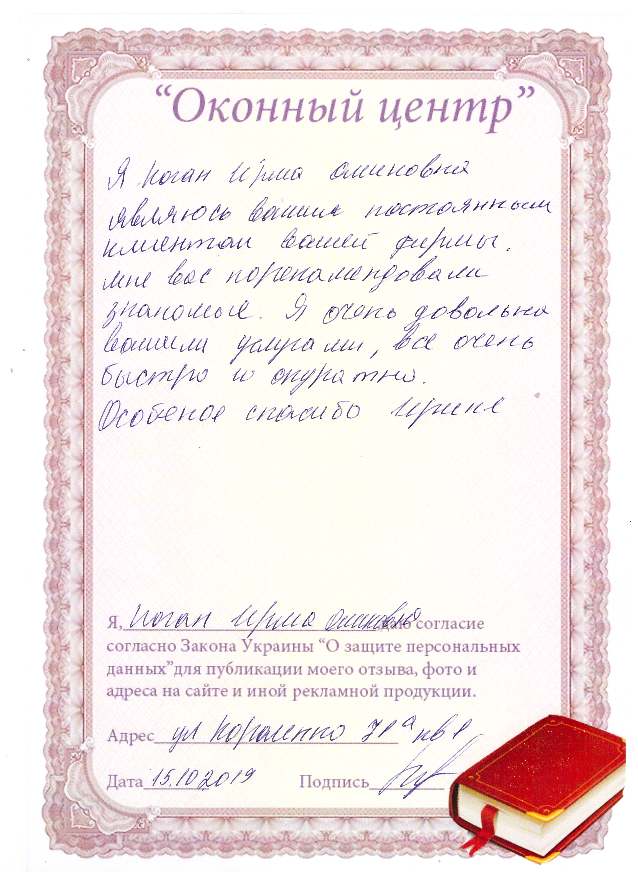 “Оконный центр”
Я Коган Ирма
являюсь вашим постоянным
клиентом вашей фирмы.
мне вас порекамендовали
знакомые. Я очень довольна
вашими услугами, все очень
быстро и окуратно.
Особеное спасибо Ирине
Я, Коган Ирма даю согласие
согласно Закона Украины “О защите персональных
данных”для публикации моего отзыва, фото и
адреса на сайте и иной рекламной продукции.
Адрес ул Короленко 71а кв 1
Дата 15.10.2019 Подпись